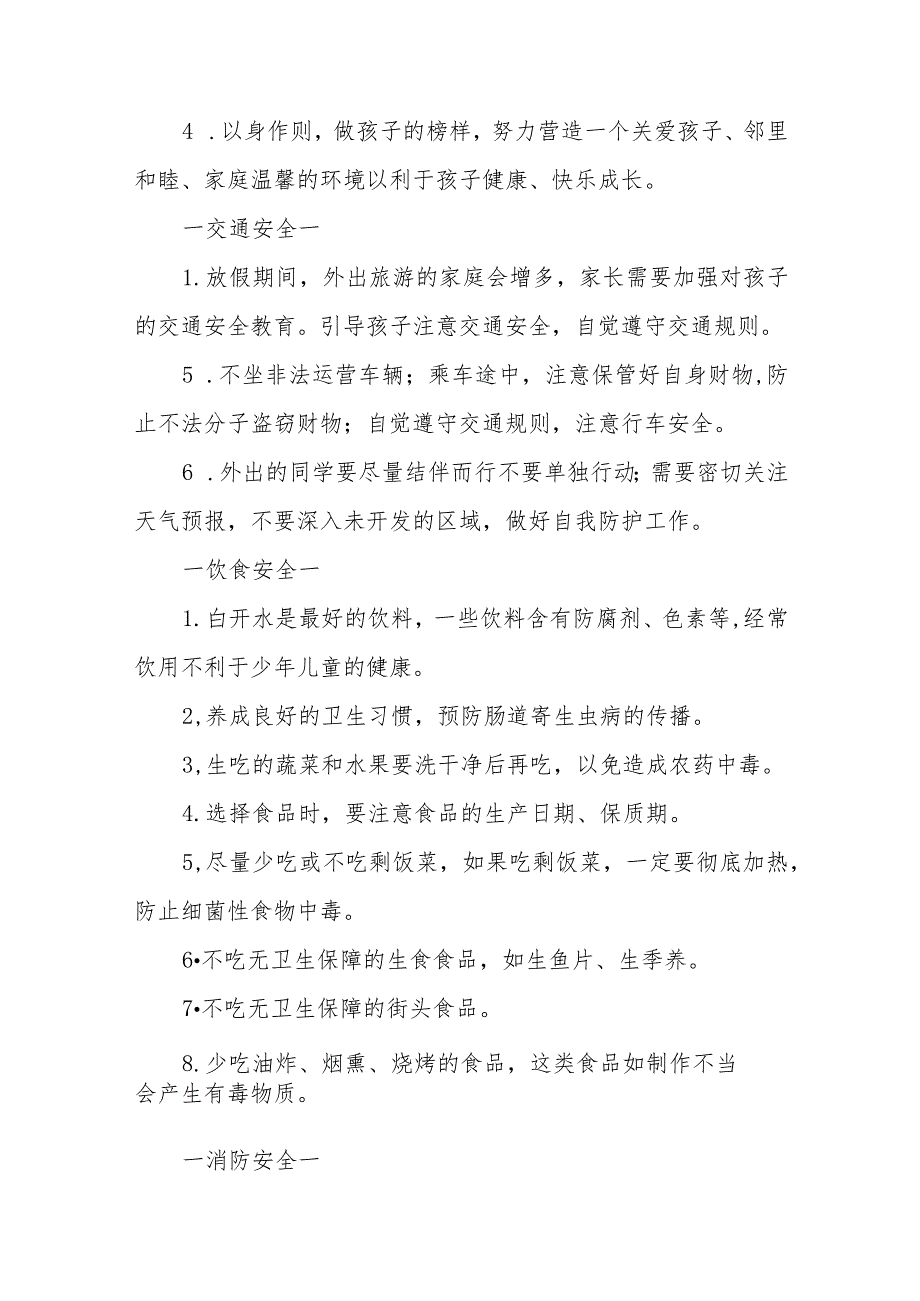 4 .以身作则，做孩子的榜样，努力营造一个关爱孩子、邻里
和睦、家庭温馨的环境以利于孩子健康、快乐成长。
一交通安全一
1.放假期间，外出旅游的家庭会增多，家长需要加强对孩子
的交通安全教育。引导孩子注意交通安全，自觉遵守交通规则。
5 .不坐非法运营车辆；乘车途中，注意保管好自身财物,防
止不法分子盗窃财物；自觉遵守交通规则，注意行车安全。
6 .外出的同学要尽量结伴而行不要单独行动；需要密切关注
天气预报，不要深入未开发的区域，做好自我防护工作。
一饮食安全一
1.白开水是最好的饮料，一些饮料含有防腐剂、色素等,经常
饮用不利于少年儿童的健康。
2,养成良好的卫生习惯，预防肠道寄生虫病的传播。
3,生吃的蔬菜和水果要洗干净后再吃，以免造成农药中毒。
4.选择食品时，要注意食品的生产日期、保质期。
5,尽量少吃或不吃剩饭菜，如果吃剩饭菜，一定要彻底加热，
防止细菌性食物中毒。
6•不吃无卫生保障的生食食品，如生鱼片、生季养。
7•不吃无卫生保障的街头食品。
8.少吃油炸、烟熏、烧烤的食品，这类食品如制作不当
会产生有毒物质。
一消防安全一